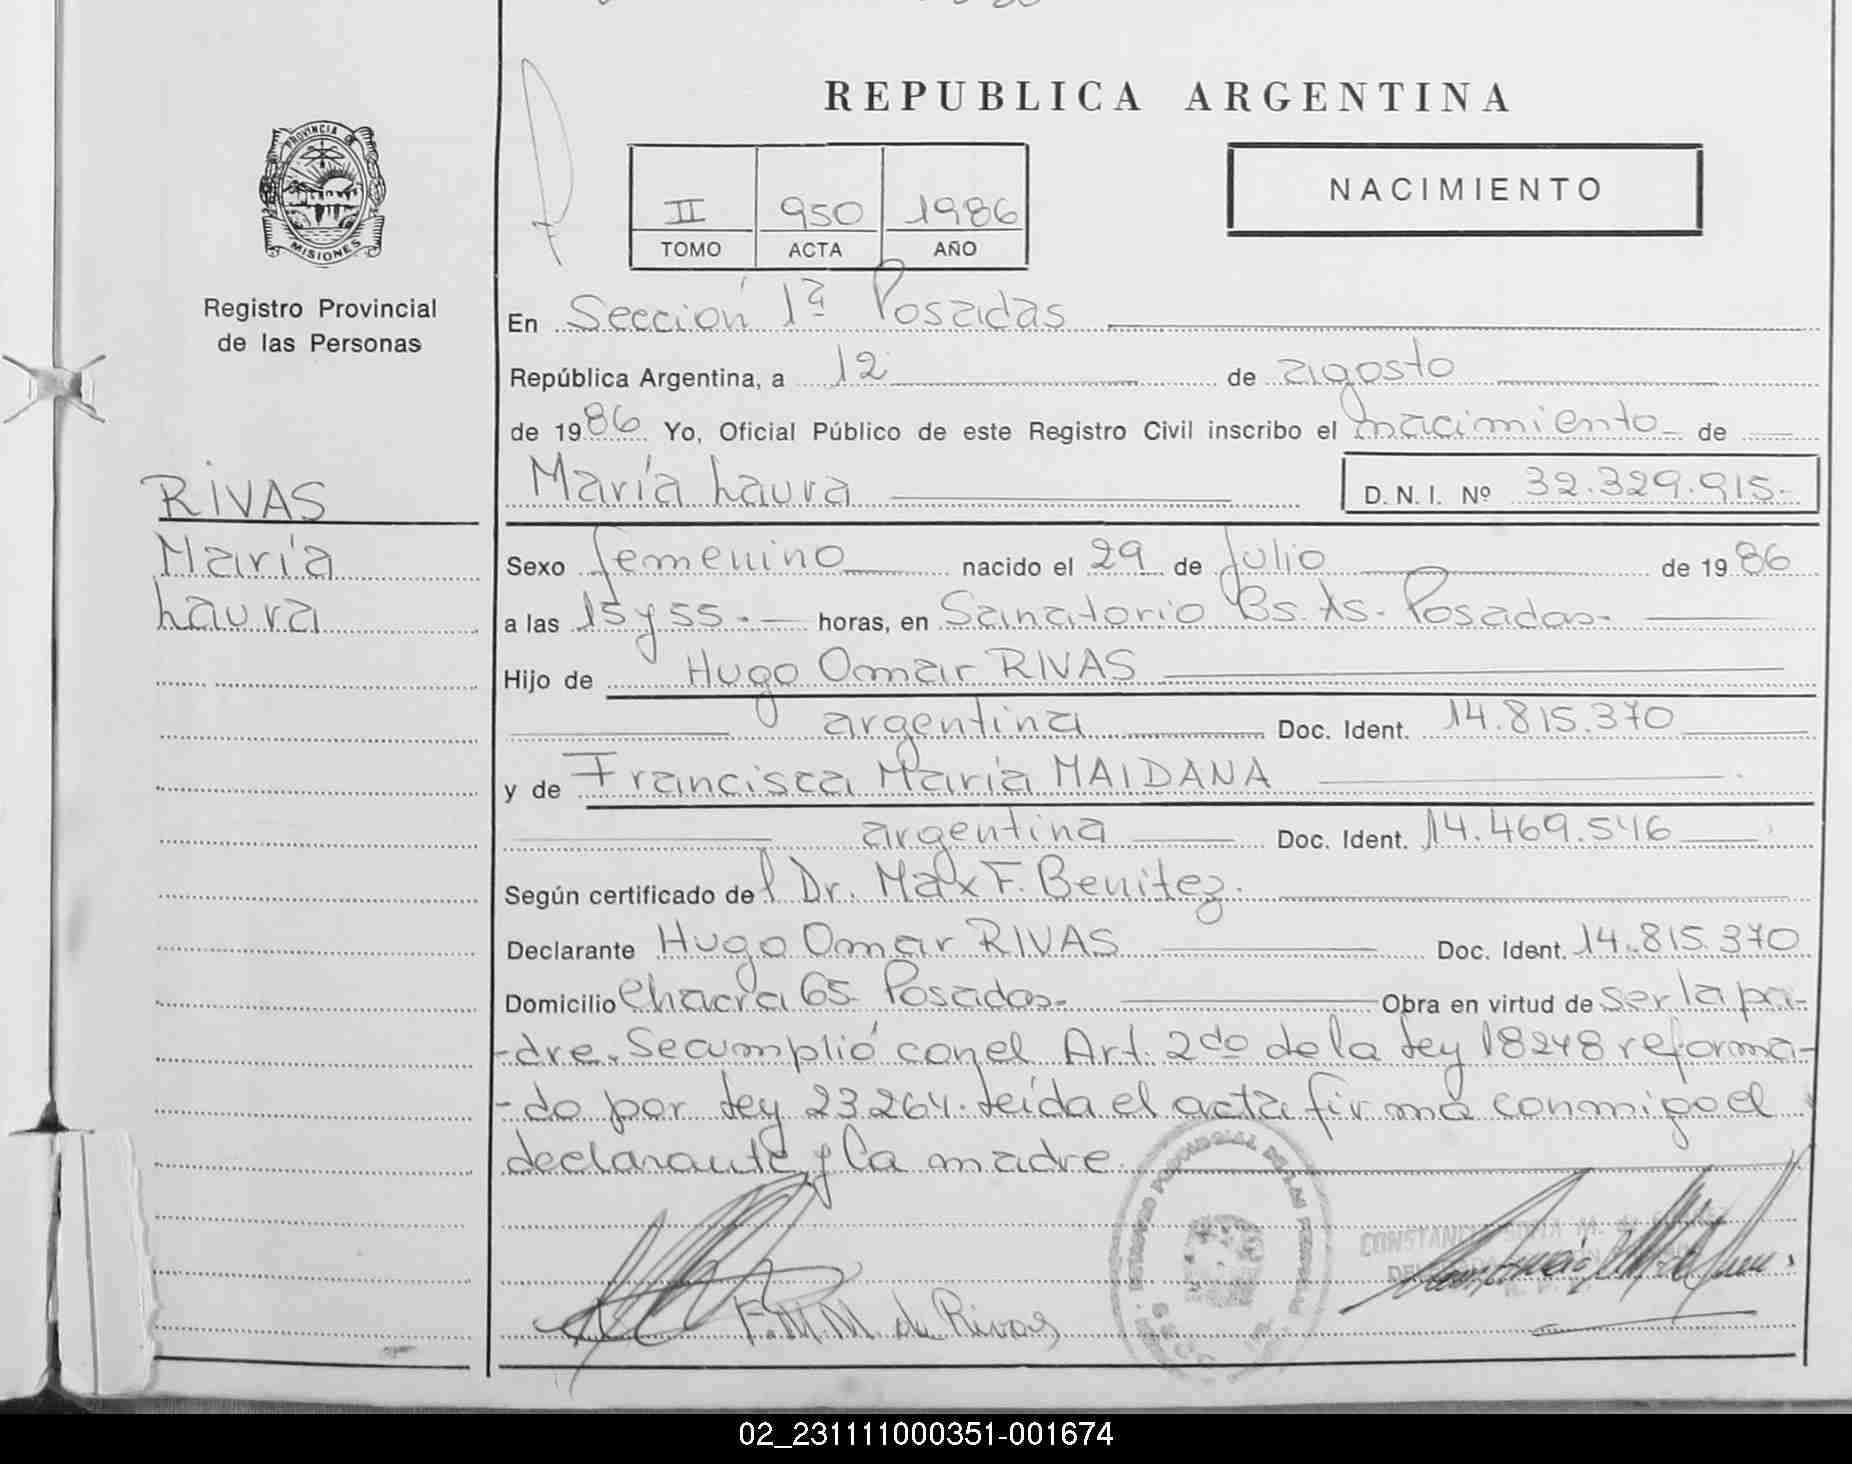 REPUBLICA ARGENTINA
PROVINCIA DE
MISIONES
Registro Provincial
de las Personas
NACIMIENTO
II 950 1986
TOMO ACTA AÑO
En Sección 1ª Posadas
República Argentina, a 12 de agosto
de 1986 Yo, Oficial Público de este Registro Civil inscribo el nacimiento de
María Laura D. N. I. Nº 32.329.915.-
RIVAS
María
Laura
Sexo femenino nacido el 29 de Julio de 1986
a las 15 y 55.- horas, en Sanatorio Bs. As. Posadas.
Hijo de Hugo Omar RIVAS
argentina Doc. Ident. 14.815.370
y de Francisca María MAIDANA
argentina Doc. Ident. 14.469.546
Según certificado del Dr. Max F. Benitez.
Declarante Hugo Omar RIVAS Doc. Ident. 14.815.370
Domicilio Chacra 65 Posadas.- Obra en virtud de ser la pa-
-dre. Se cumplió con el Art. 2do de la Ley 18248 reforma-
-do por Ley 23264. Leída el acta firma conmigo el
declarante y la madre.
F.M.M de Rivas
02_231111000351-001674